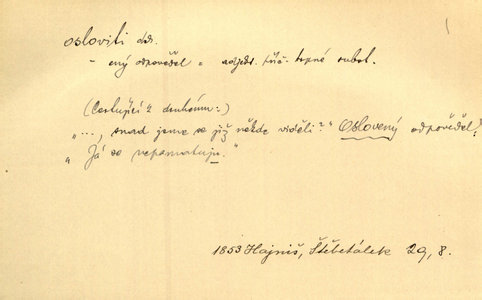 osloviti dok.
- ený odpověděl = adjekt. trpné subst.
(Cestující k druhému:)
"..., snad jsme se již někde viděli?" Oslovený odpověděl:
"Já se nepamatuju."
1853 Hajniš, Štěbetálek 29, 8.